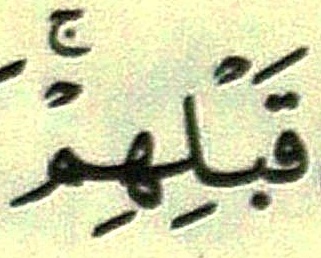 قَبْلِهِمْ ۚ